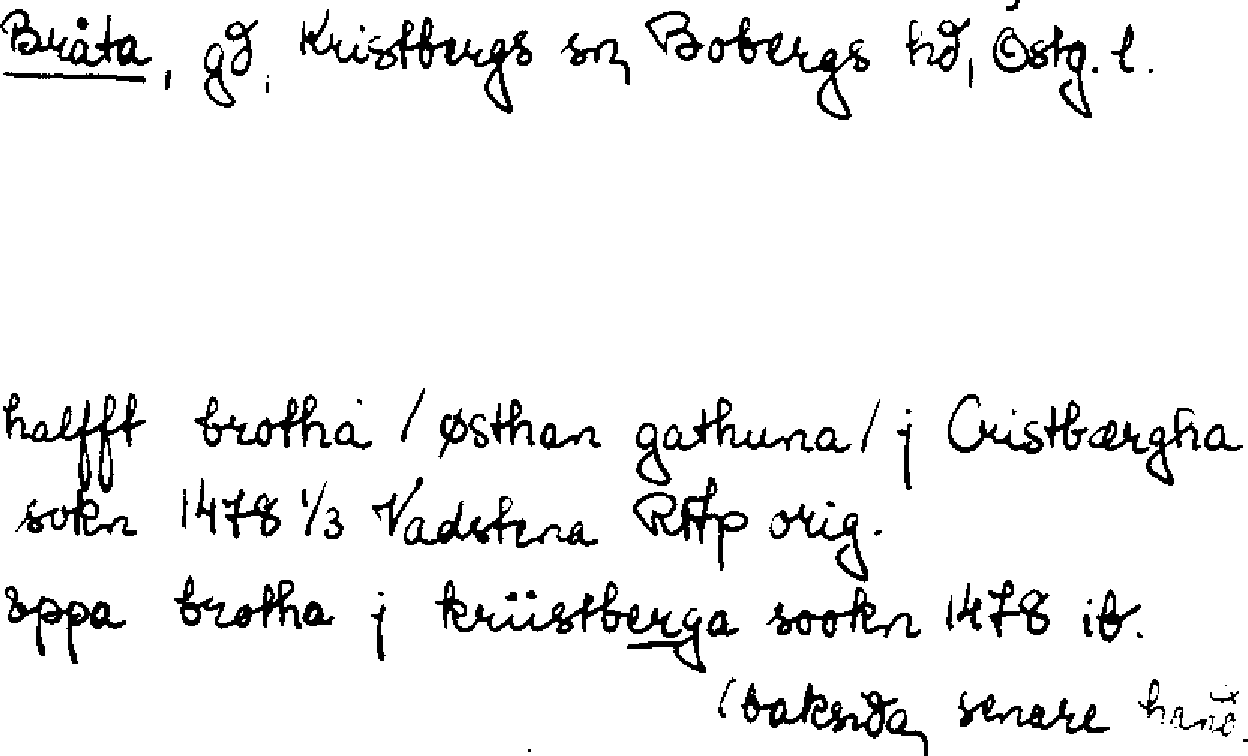 Bråta, gd, Kristbergs sn, Bobergs hd, Östg. l.
halfft brotha / østhan gathuna / j Cristbærgha
sokn 1478 1/3 Vadstena RAp orig.
oppa brotha j kriistberga sookn 1478 ib.
(baksida, senare hand.